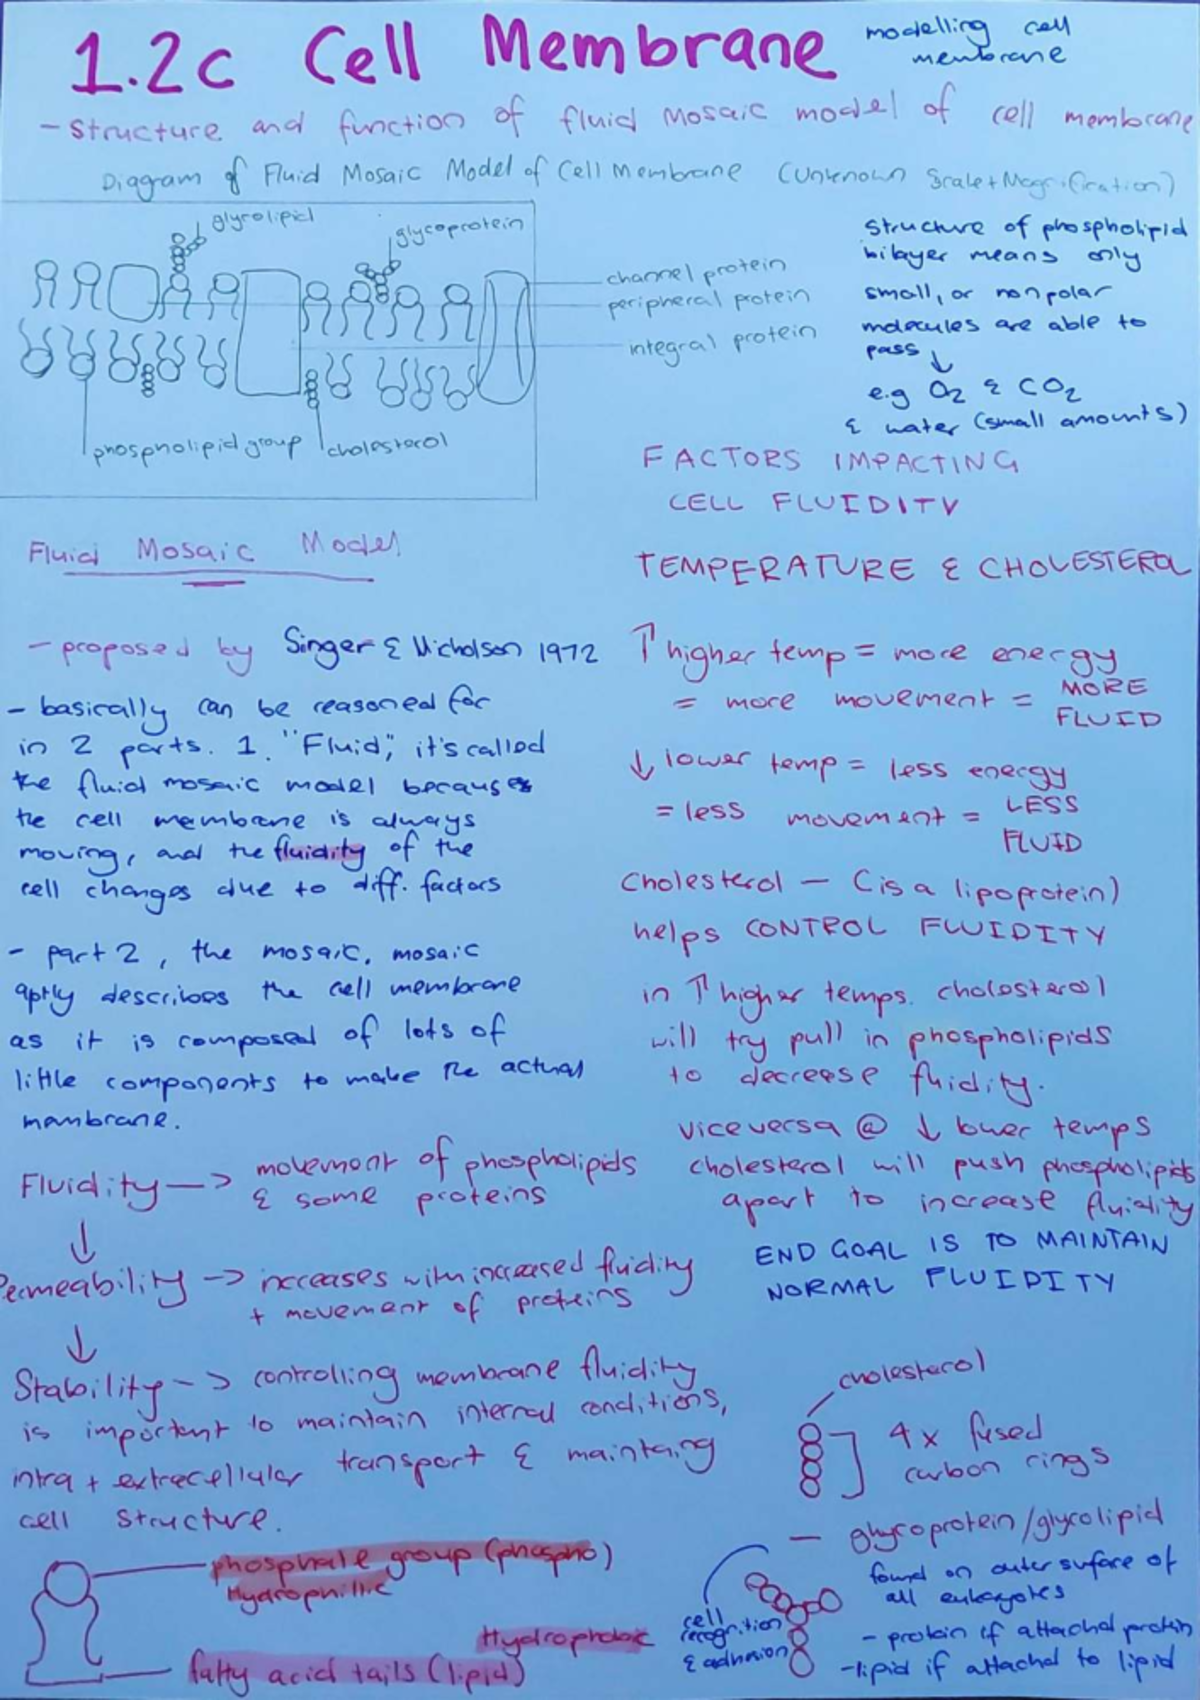 1.2c Cell Membrane
modelling cell
membrane
- structure and function of fluid mosaic model of cell membrane
Diagram of Fluid Mosaic Model of Cell Membrane (Unknown Scale + Magnification)
glycolipid
glycoprotein
channel protein
peripheral protein
integral protein
phospholipid group
cholesterol
structure of phospholipid
bilayer means only
small, or nonpolar
molecules are able to
pass ↓
e.g O2 & CO2
& water (small amounts)
FACTORS IMPACTING
CELL FLUIDITY
TEMPERATURE & CHOLESTEROL
Fluid Mosaic Model
- proposed by Singer & Nicholson 1972
- basically can be reasoned for
in 2 parts. 1. "Fluid", it's called
the fluid mosaic model because
the cell membrane is always
moving, and the fluidity of the
cell changes due to diff. factors
- part 2, the mosaic. mosaic
aptly describes the cell membrane
as it is composed of lots of
little components to make the actual
membrane.
Fluidity -> movement of phospholipids
& some proteins
↓
Permeability -> increases with increased fluidity
+ movement of proteins
↓
Stability -> controlling membrane fluidity
is important to maintain internal conditions,
intra + extracellular transport & maintaing
cell structure.
phosphate group (phospho)
Hydrophillic
Hydrophobic
fatty acid tails (lipid)
↑ higher temp = more energy
= more movement = MORE
FLUID
↓ lower temp = less energy
= less movement = LESS
FLUID
Cholesterol - (is a lipoprotein)
helps CONTROL FLUIDITY
in ↑ higher temps. cholesterol
will try pull in phospholipids
to decrease fluidity.
viceversa @ ↓ lower temps
cholesterol will push phospholipids
apart to increase fluidity
END GOAL IS TO MAINTAIN
NORMAL FLUIDITY
cholesterol
4x fused
carbon rings
- glycoprotein/glycolipid
found on outer surface of
all eukaryotes
- protein if attached protein
- lipid if attached to lipid
cell
recognition
& adhesion